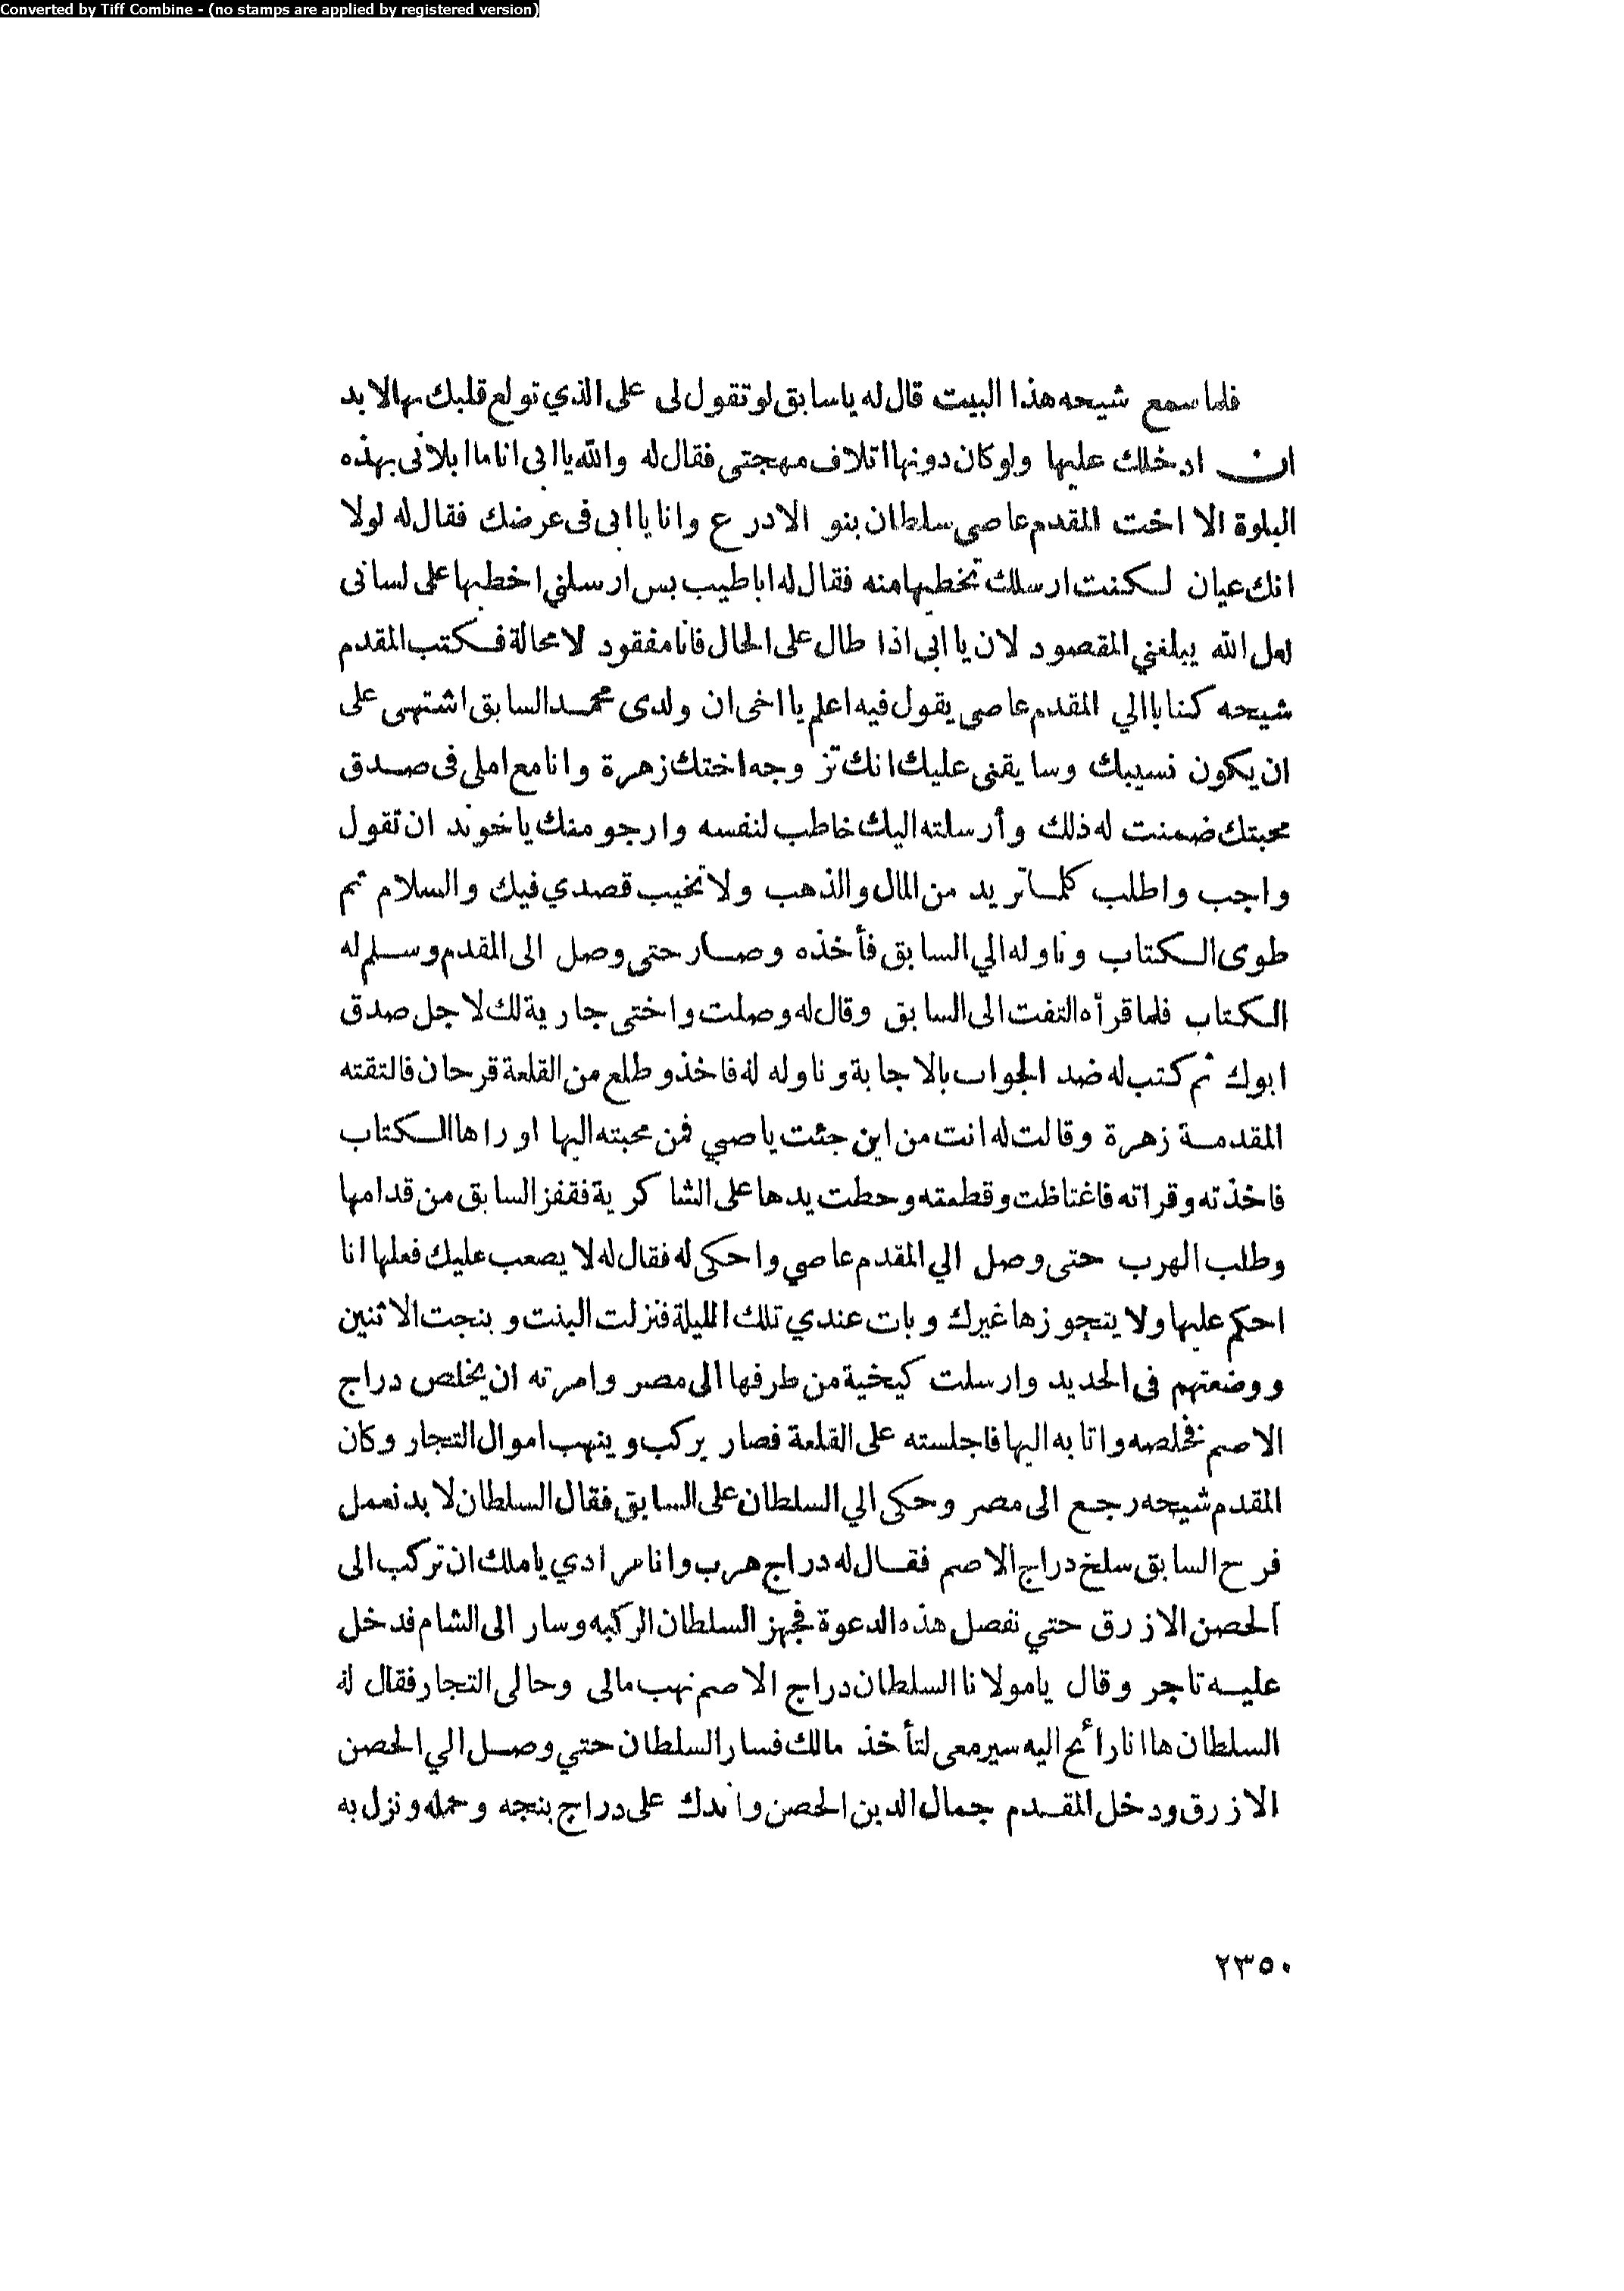 Converted by Tiff Combine - (no stamps are applied by registered version)
فلما سمع شيحه هذا البيت قال له ياسابق لو تقول لى على الذي تولع قلبك بها لا بد
ان ادخلك عليها ولو كان دونها اتلاف مهجتى فقال له والله يا ابى انا ما ابلانى بهذه
البلوة الا اخت المقدم عاصى سلطان بنو الادرع وانا يا ابى فى عرضك فقال له لولا
انك عيان لكنت ارسلك تخطبها منه فقال له اباطيب بس ارسلني اخطبها على لسانى
لعل الله يبلغني المقصود لان يا ابى اذا طال على الحال فانا مفقود لا محالة فكتب المقدم
شيحه كتابا الي المقدم عاصي يقول فيه اعلم يا اخى ان ولدى محمد السابق اشتهى على
ان يكون نسيبك وسايقنى عليك انك تزوجه اختك زهرة وانا مع املى فى صدق
محبتك ضمنت له ذلك وأرسلته اليك خاطب لنفسه وارجو منك ياخوند ان تقول
واجب واطلب كلما تريد من المال والذهب ولا تخيب قصدي فيك والسلام ثم
طوى الكتاب وناوله الي السابق فأخذه وصار حتى وصل الى المقدم وسلم له
الكتاب فلما قرأه التفت الى السابق وقال له وصلت واختى جارية لك لاجل صدق
ابوك ثم كتب له ضد الجواب بالاجابة وناوله له فاخذو طلع من القلعة قرحان فالتقته
المقدمة زهرة وقالت له انت من اين جئت ياصبي فمن محبته اليها اوراها الكتاب
فاخذته وقراته فاغتاظت وقطعته وحطت يدها على الشاكرية فقفز السابق من قدامها
وطلب الهرب حتى وصل الي المقدم عاصي واحكى له فقال له لا يصعب عليك فعلها انا
احكم عليها ولا يتجوزها غيرك وبات عندي تلك الليلة فنزلت البنت وبنجت الاثنين
ووضعتهم فى الحديد وارسلت كيخية من طرفها الى مصر وامرته ان يخلص دراج
الاصم فخلصه واتا به اليها فاجلسته على القلعة فصار يركب وينهب اموال التجار وكان
المقدم شيحه رجع الى مصر وحكى الي السلطان على السابق فقال السلطان لا بد نعمل
فرح السابق سلخ دراج الاصم فقال له دراج هرب وانا مرادي ياملك ان تركب الى
الحصن الازرق حتي نفصل هذه الدعوة فجهز السلطان الركبه وسار الى الشام فدخل
عليه تاجر وقال يامولانا السلطان دراج الاصم نهب مالى وحالى التجار فقال له
السلطان ها انا رائح اليه سير معى لتأخذ مالك فسار السلطان حتي وصل الي الحصن
الازرق ودخل المقدم جمال الدين الحصن واندك على دراج بنجه وحمله ونزل به
٢٣٥٠